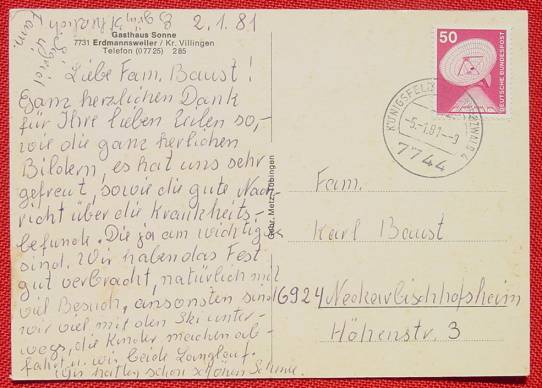 2.1.81
Gasthaus Sonne
7731 Erdmannsweiler / Kr. Villingen
Telefon (07725) 285
Liebe Fam. Baust!
Ganz herzlichen Dank
für Ihre lieben Zeilen so,-
wie die ganz herlichen
Bildern, es hat uns sehr
gefreut, sowie die gute Nach-
richt über die Krankheits-
befunde. Die ja am wichtigs
sind. Wir haben das Fest
gut verbracht, natürlich mit
viel Besuch, ansonsten sind
wir viel mit den Ski unter-
wegs, die Kinder machen ab-
fahrt u. wir beide Langlauf.
Wir hatten schon schönen Schnee.
Fam.
Gebr. Metz, Tübingen
50
DEUTSCHE BUNDESPOST
KÖNIGSFELD
-5.-1.81.--9
7744
Fam.
Karl Baust
6924 Neckarbischhofsheim
Höhenstr. 3